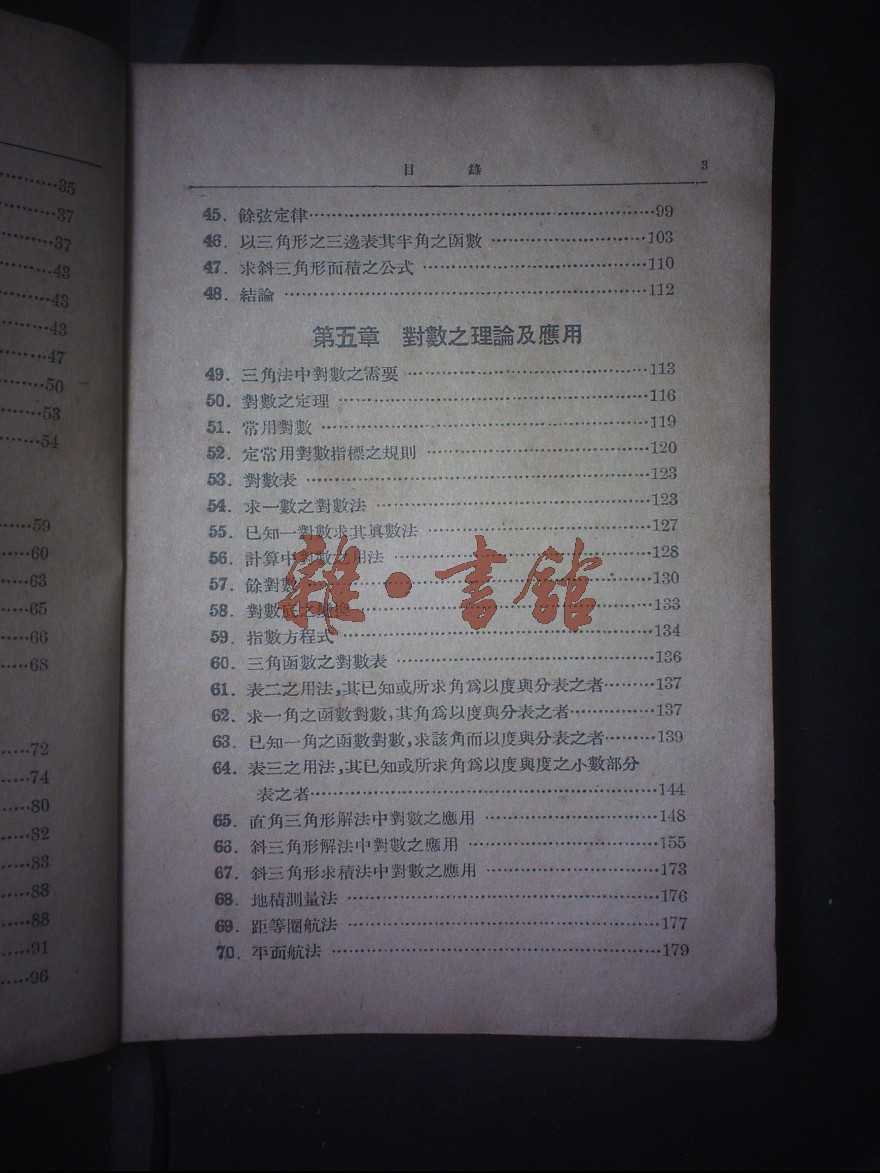 ……35
……37
……37
……43
……43
……43
……47
……50
……53
……54
……59
……60
……63
……65
……66
……68
……72
……74
……80
……82
……83
……88
……88
……91
……96
目 錄 3
45. 餘弦定律……99
46. 以三角形之三邊表其半角之函數……103
47. 求斜三角形面積之公式……110
48. 結論……112
第五章 對數之理論及應用
49. 三角法中對數之需要……113
50. 對數之定理……116
51. 常用對數……119
52. 定常用對數指標之規則……120
53. 對數表……123
54. 求一數之對數法……123
55. 已知一對數求其眞數法……127
56. 計算中對數之用法……128
57. 餘對數……130
58. 對數底之……133
59. 指數方程式……134
60. 三角函數之對數表……136
61. 表二之用法,其已知或所求角爲以度與分表之者……137
62. 求一角之函數對數,其角爲以度與分表之者……137
63. 已知一角之函數對數,求該角而以度與分表之者……139
64. 表三之用法,其已知或所求角爲以度與度之小數部分
表之者……144
65. 直角三角形解法中對數之應用……148
66. 斜三角形解法中對數之應用……155
67. 斜三角形求積法中對數之應用……173
68. 地積測量法……176
69. 距等圈航法……177
70. 平面航法……179
雜·書館